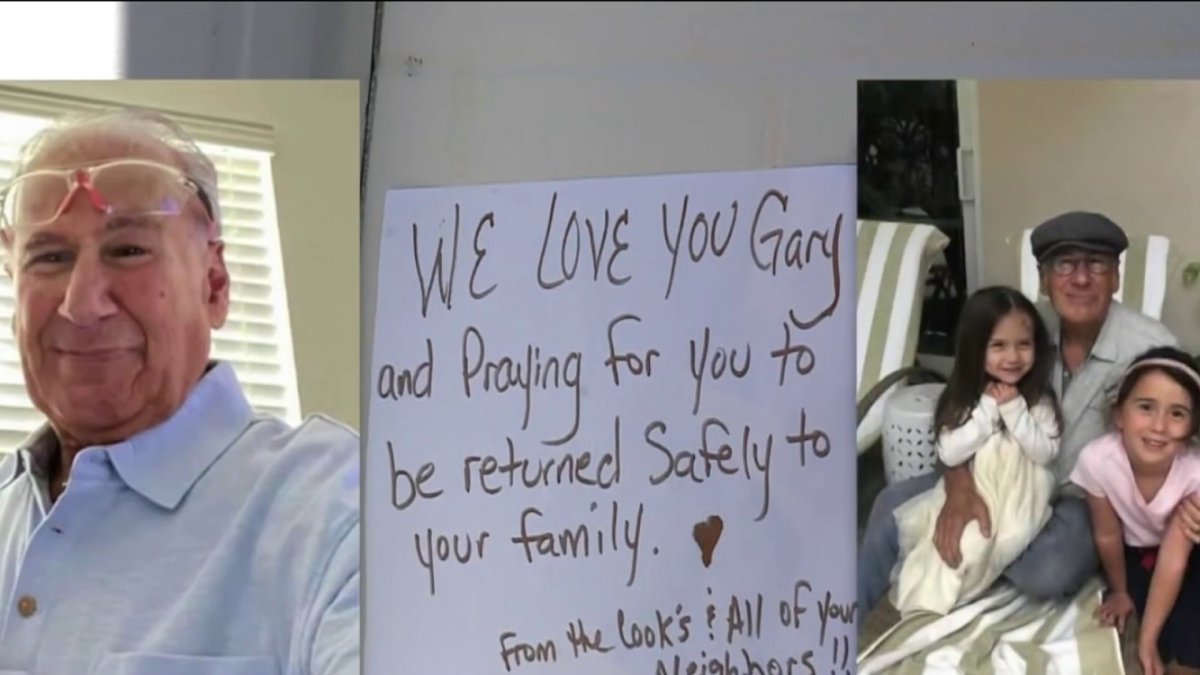 WE LOVE YOU Gary
and Praying for you to
be returned Safely to
your family.
From the Cook's & All of your
Neighbors!!